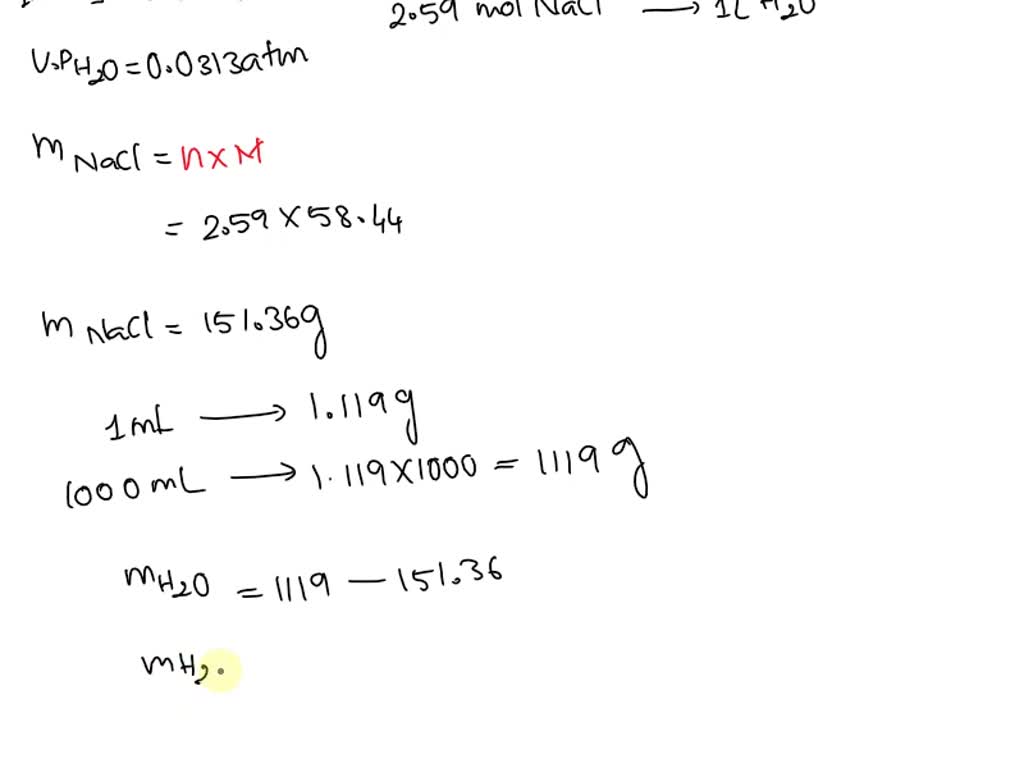 2.59 mol NaCl → 1L H2O
V.PH2O = 0.0313atm
m NaCl = n x M
= 2.59 X 58.44
m NaCl = 151.36g
1mL → 1.119g
1000mL → 1.119X1000 = 1119g
mH2O = 1119 — 151.36
mH2.